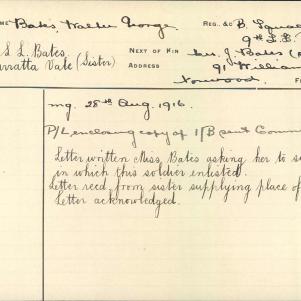 Bates, Walter George. REG. NO B. Squa
9th L.H.
S L. Bates. NEXT OF KIN Mrs. J. Bates (
arratta Vale (Sister) ADDRESS 91 William
Norwood.
mg. 28th Aug. 1916.
P/L enclosing copy of 1/B sent Comm
Letter written Miss Bates asking her to s
in which this soldier enlisted.
Letter recd. from sister supplying place of
Letter acknowledged.